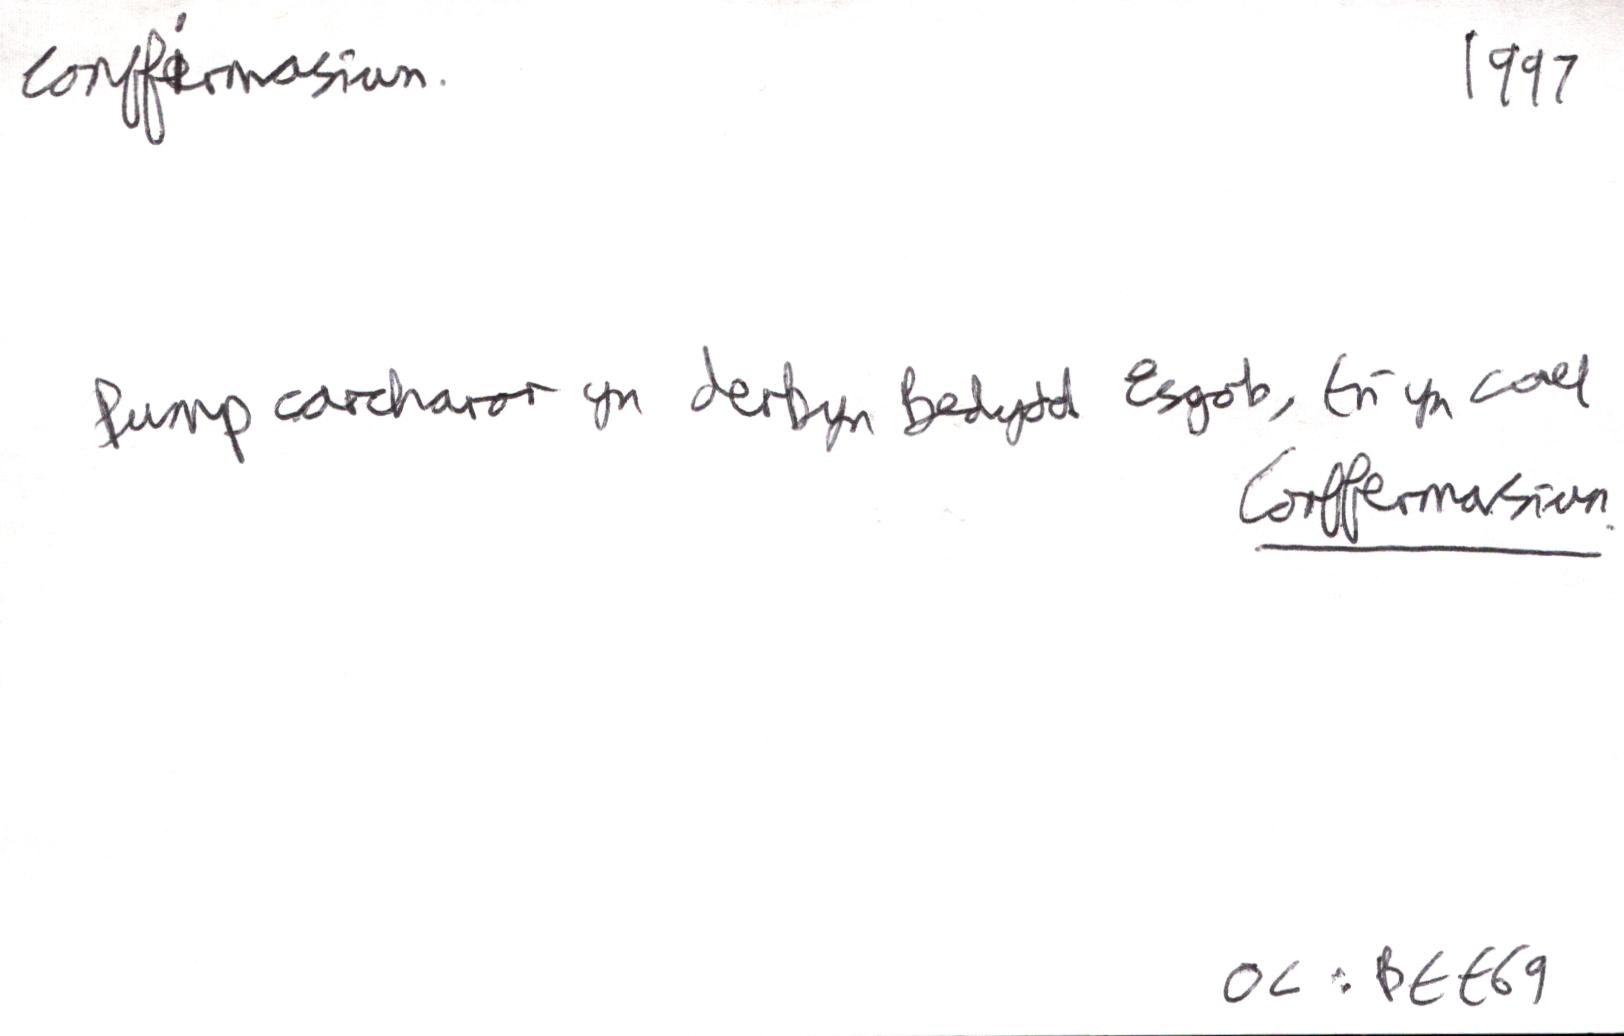 Conffirmasiwn. 1997
Pump carcharor yn derbyn Bedydd Esgob, tri yn cael
Conffermasiwn.
OC : BEE69